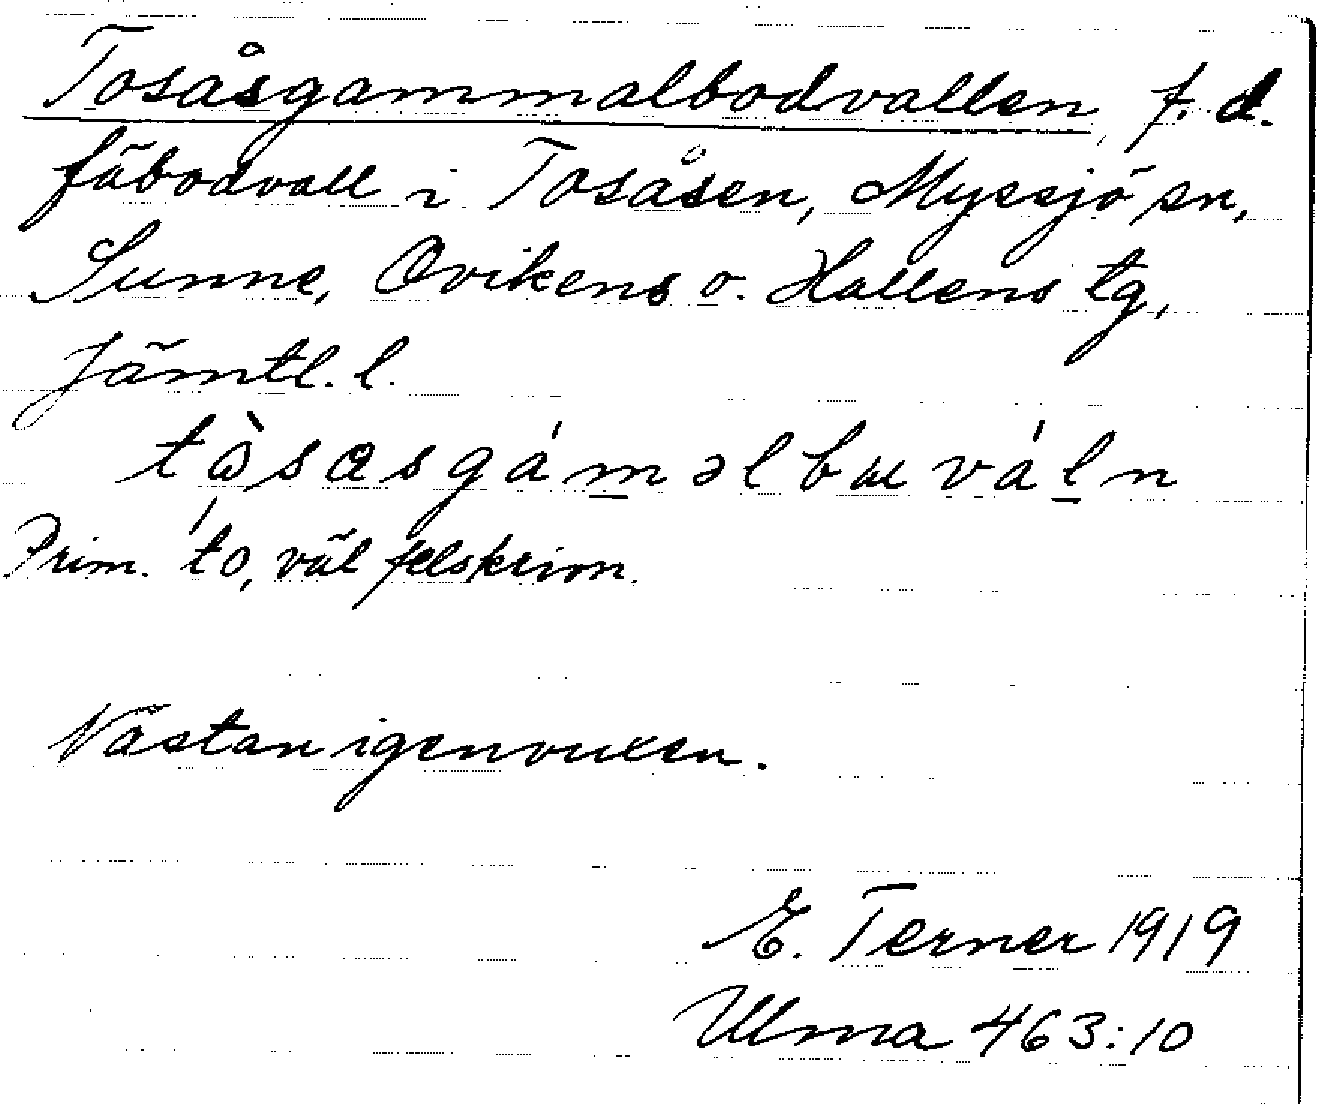 Tosåsgammalbodvallen, f. d.
fäbodvall i Tosåsen, Myssjö sn,
Sunne, Ovikens o. Hallens tg,
Jämtl. l.
tɷ̀sasgáməlbuváln
Prim. to, väl felskrivn.
Nästan igenvuxen.
E. Terner 1919
Ulma 463:10